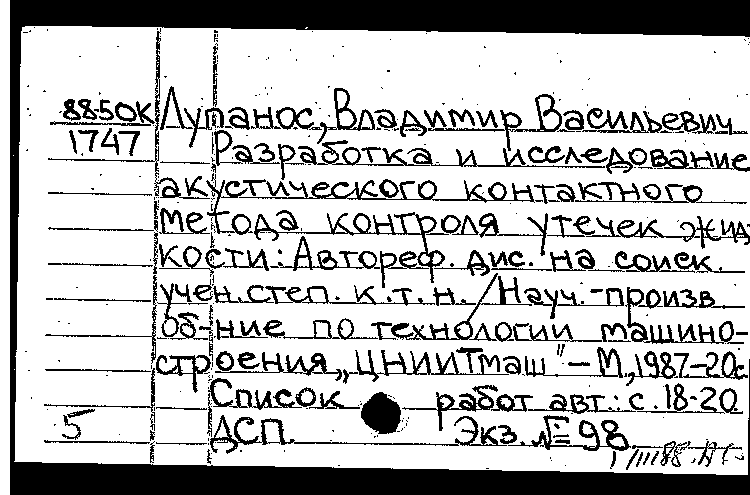 88-50К Лупанос, Владимир Васильевич
1747 Разработка и исследование
акустического контактного
метода контроля утечек жид
кости: Автореф. дис. на соиск.
учен. степ. к. т. н. / Науч.-произв
об-ние по технологии машино-
строения „ЦНИИТмаш" – М., 1987-20с
Список работ авт.: с. 18-20
5 ДСП. Экз. № 98